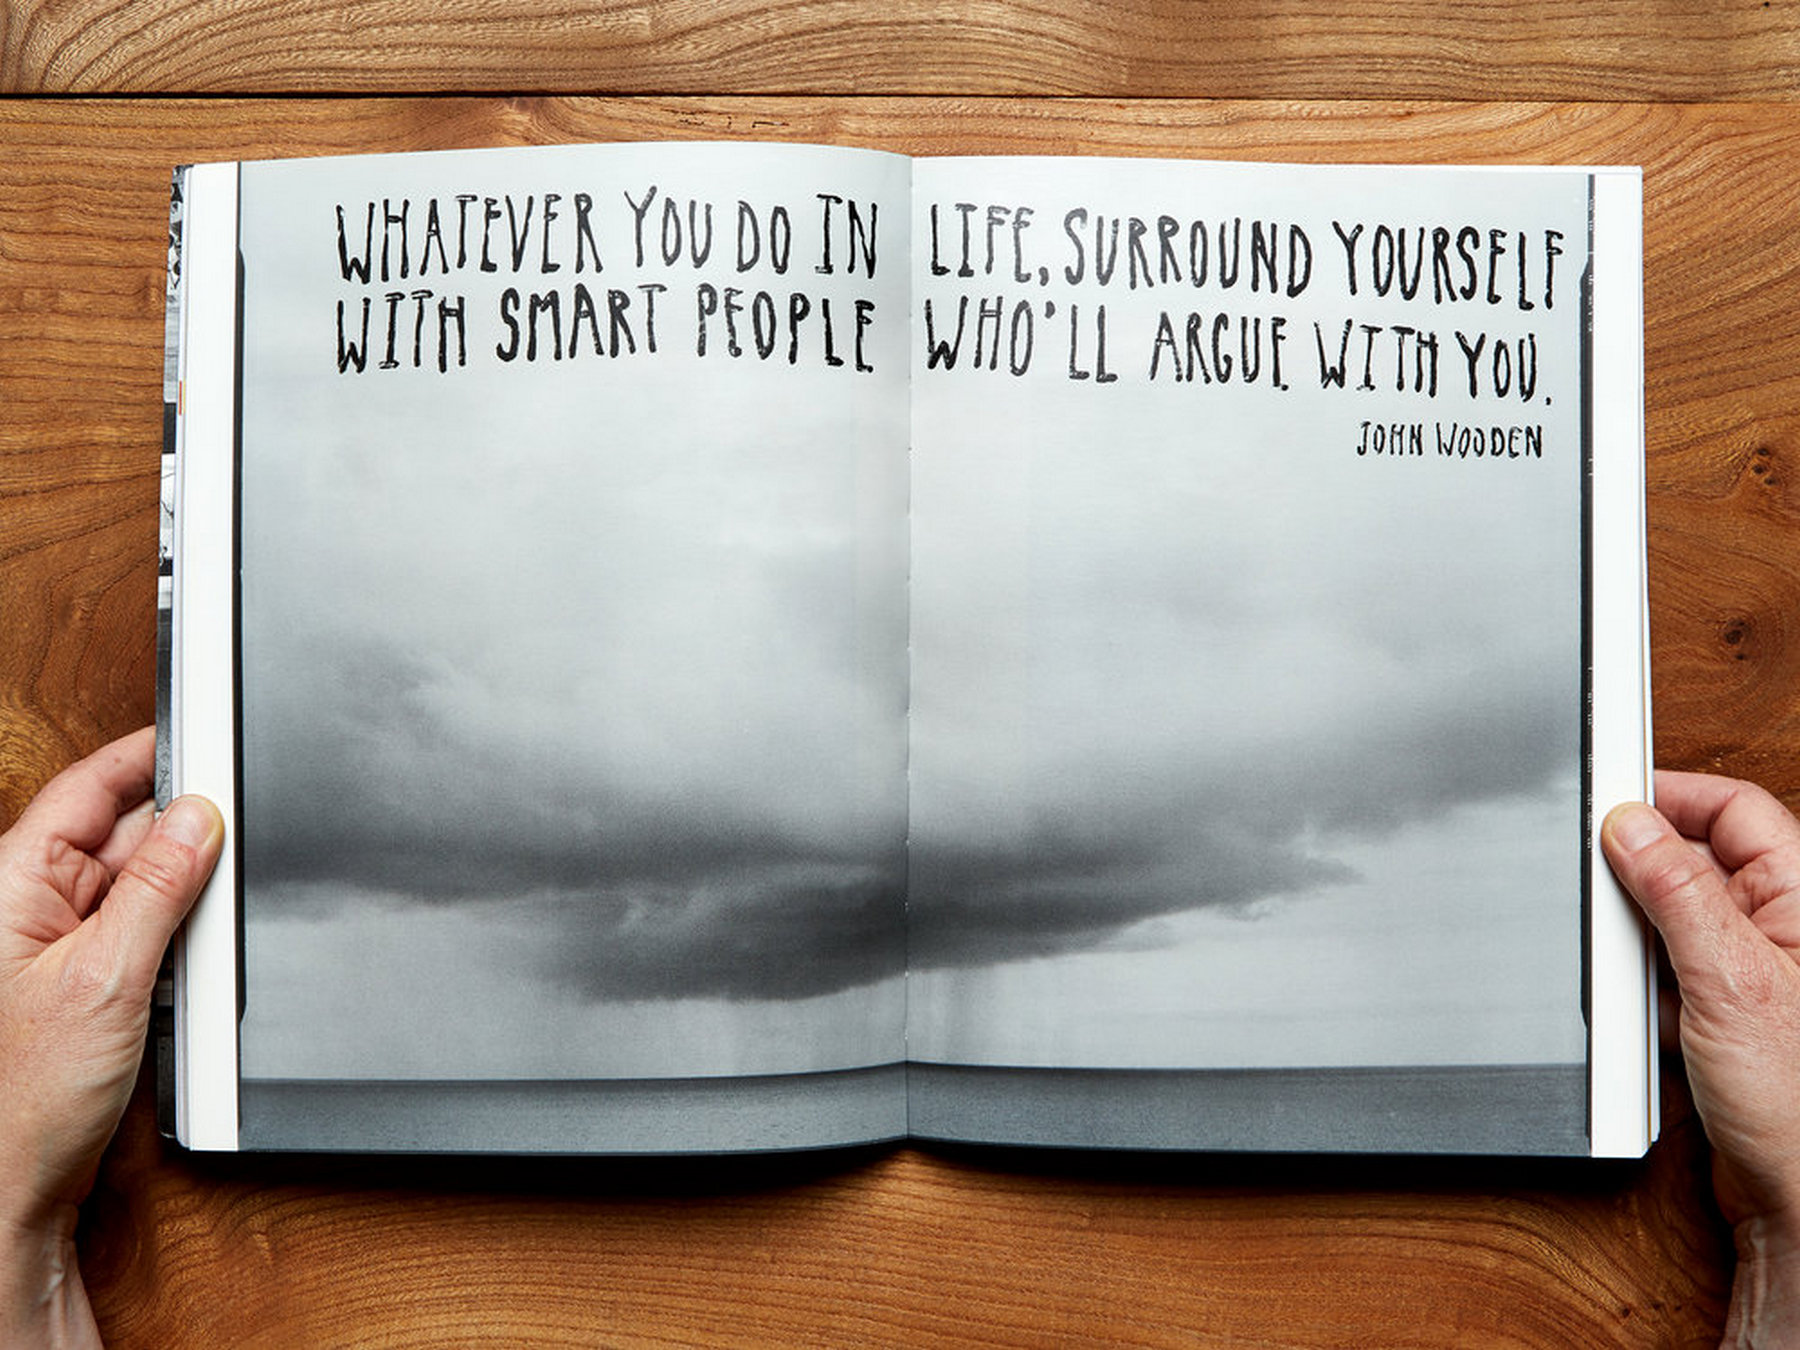 WHATEVER YOU DO IN LIFE, SURROUND YOURSELF
WITH SMART PEOPLE WHO'LL ARGUE WITH YOU.
JOHN WOODEN